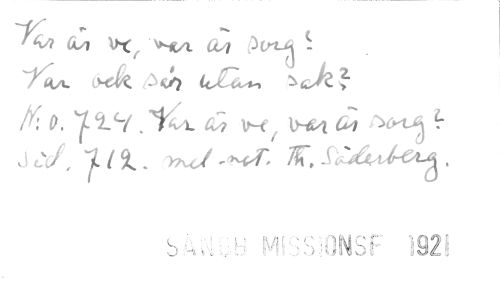 Var är ve, var är sorg?
Var ock sår utan sak?
N:o. 724. Var är ve, var är sorg?
sid. 712. mel-not. Th. Söderberg.
SÅNGB MISSIONSF 1921